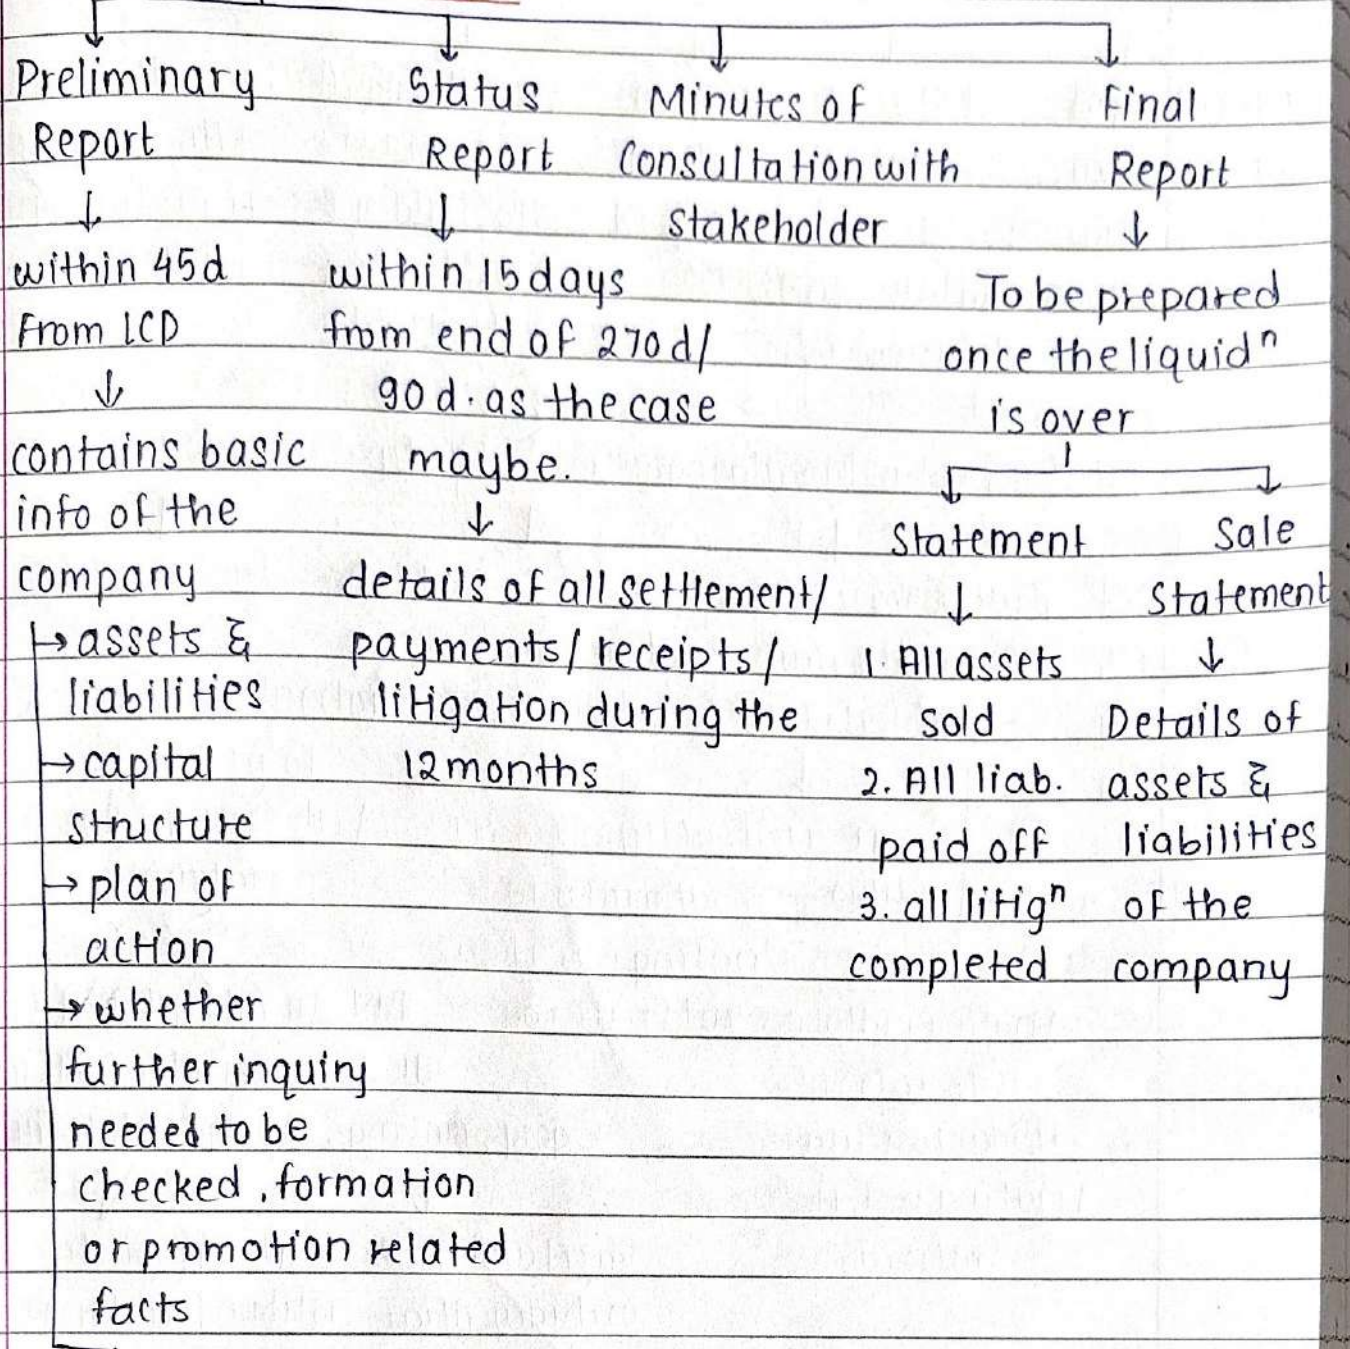 Preliminary
Report
within 45d
From LCD
contains basic
info of the
company
→ assets &
liabilities
→ capital
structure
→ plan of
action
→ whether
further inquiry
needed to be
checked, formation
or promotion related
facts
Status
Report
within 15 days
from end of 270 d/
90 d. as the case
maybe.
details of all settlement/
payments/ receipts/
litigation during the
12 months
Minutes of
Consultation with
Stakeholder
Final
Report
To be prepared
once the liquidⁿ
is over
Statement
1. All assets
sold
2. All liab.
paid off
3. all litigⁿ
completed
Sale
Statement
Details of
assets &
liabilities
of the
company